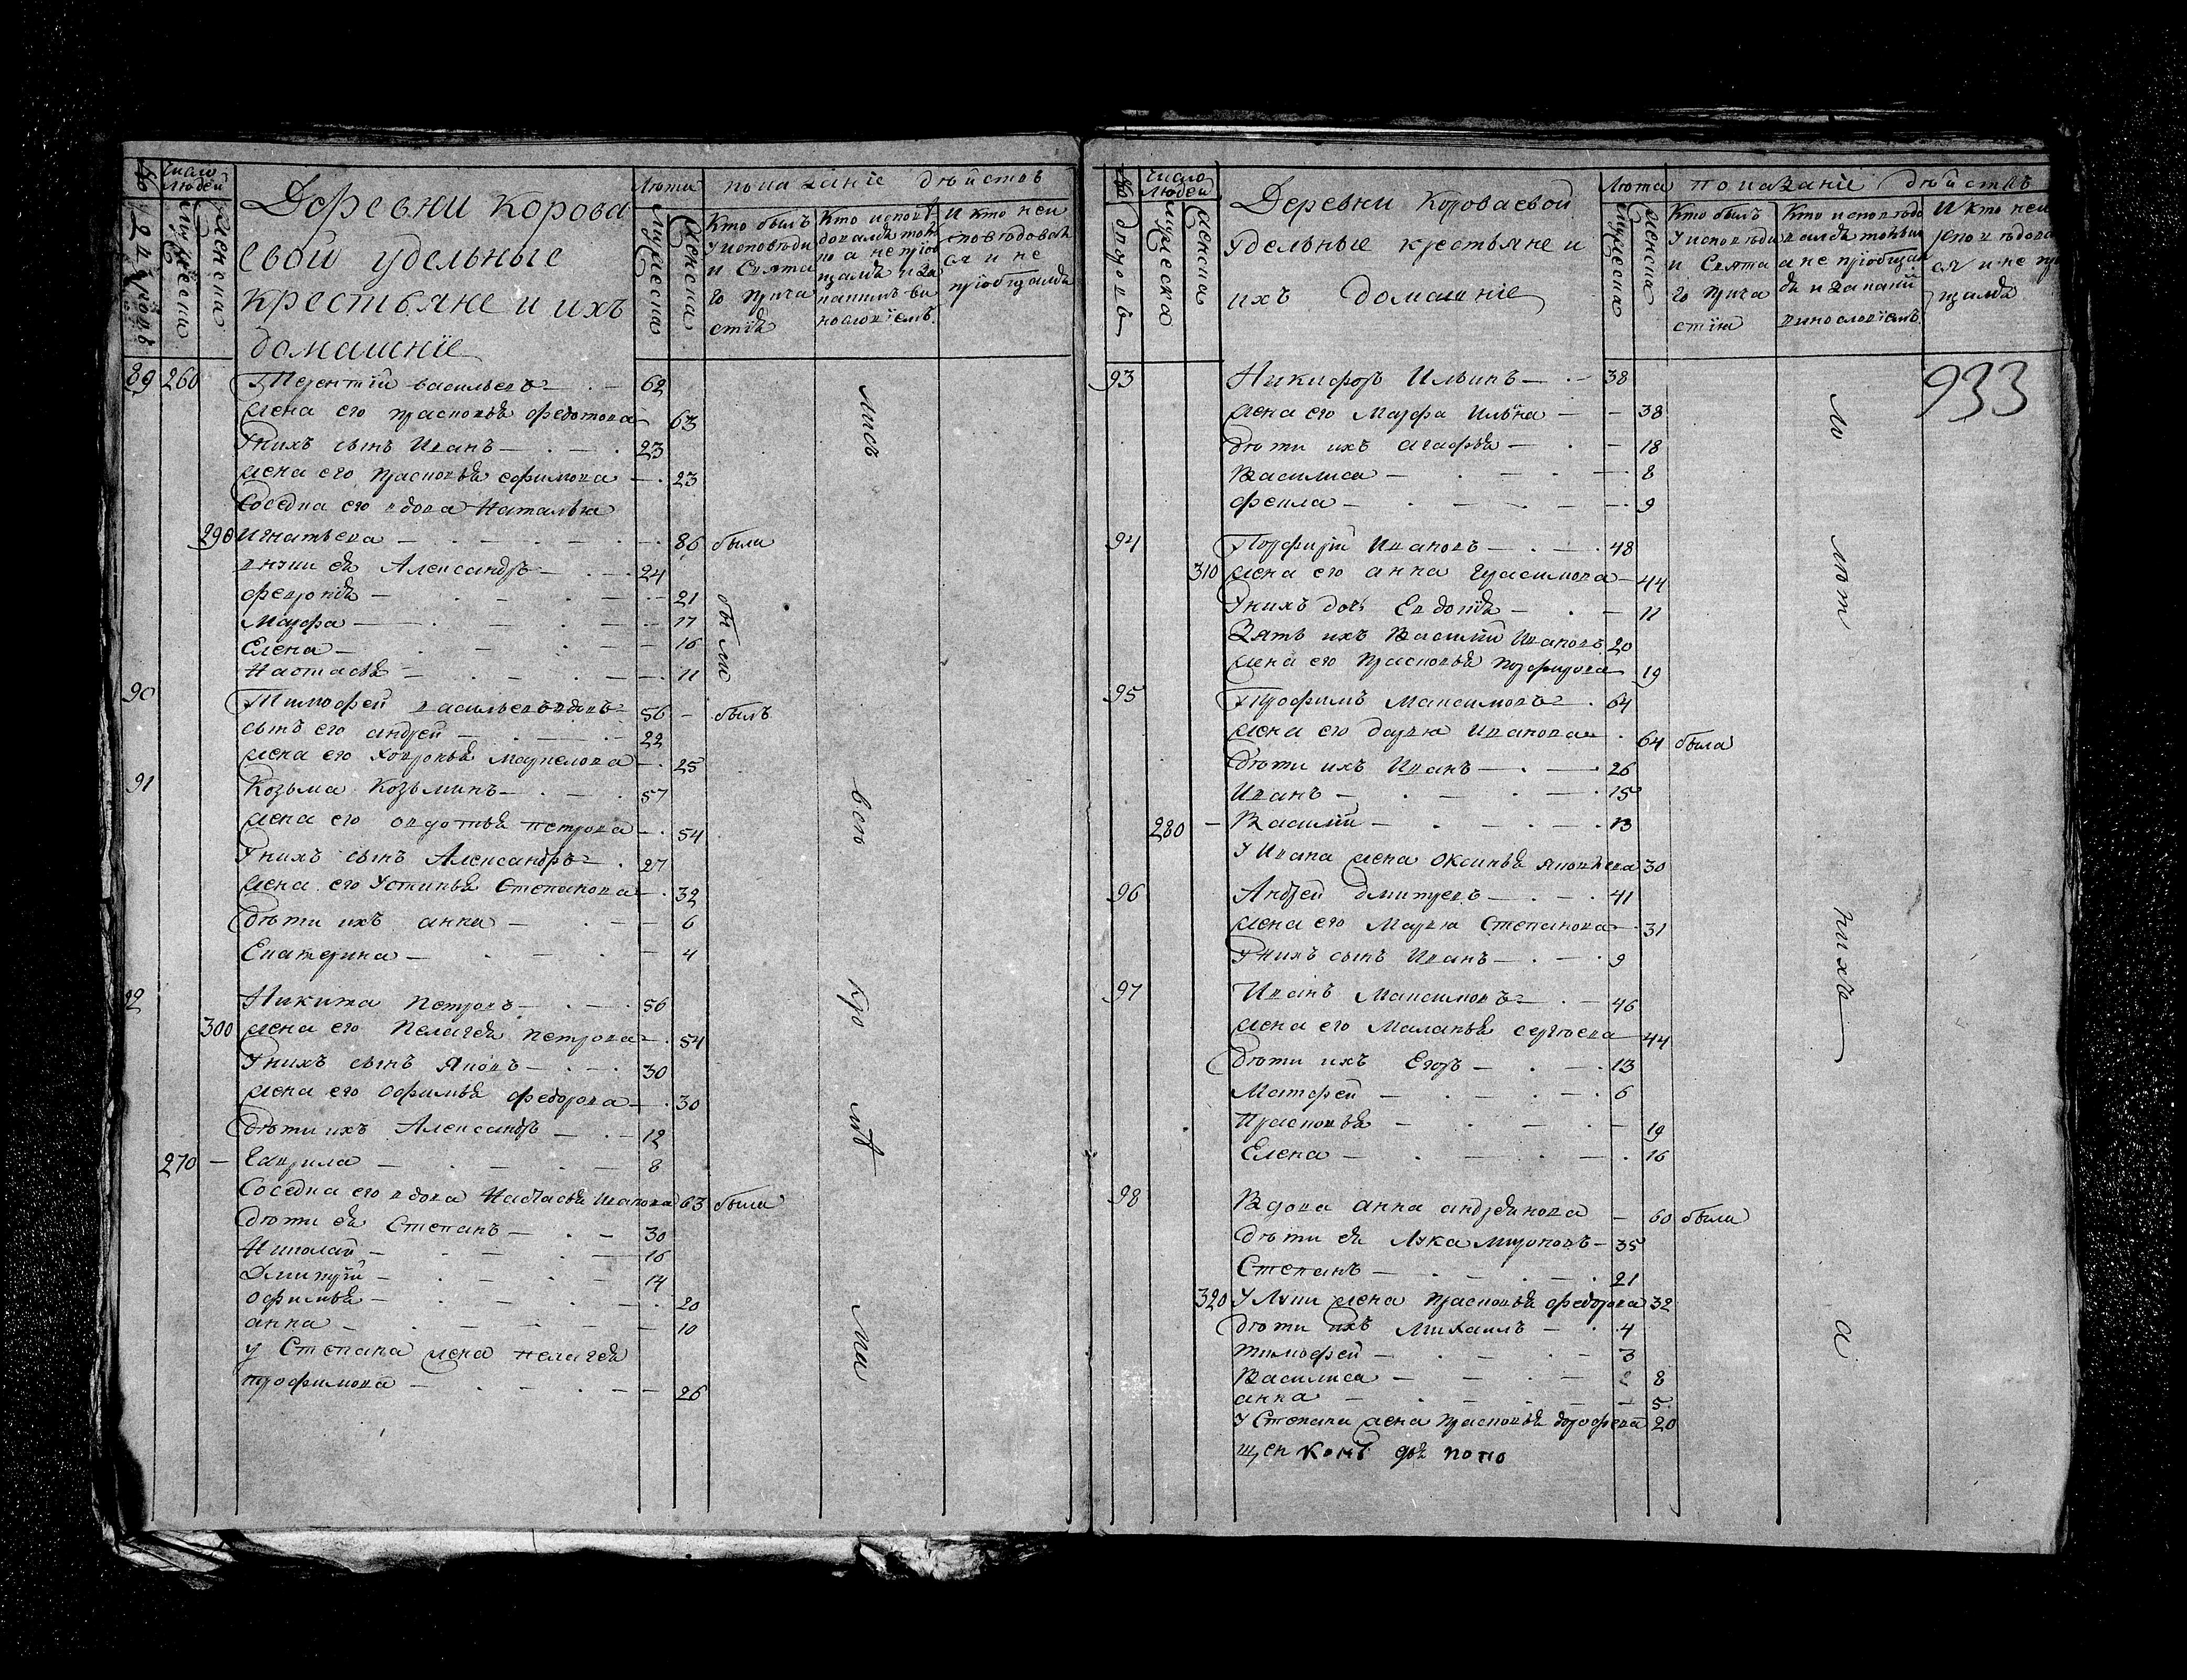 № дворовъ
Число людей
мужеска
женска
Деревни Корова
евой удельные
крестьяне и ихъ
домашніе
Лѣта
мужеска
женска
показаніе дѣйствъ
Кто былъ
у исповѣди
и Свята
го прича
стія
Кто исповѣ
довался токм
о а не пріоб
щался и за
какимъ ви
нословіемъ
И кто не и
сповѣдовал
ся и не
пріобщался
89 260 Терентій васильевъ 62
жена его прасковья федотова 63
У нихъ сынъ Иванъ 23
жена его прасковья ефимова 23
Соседка его вдова Наталья
290 игнатьева 86 была
внуки ея Александръ 24
февронія 21
Марфа 17
Елена 16
Настасья 11
были
90 Тимофей васильевъ вдовъ 56 былъ
сынъ его андрей 22
жена его ховронья маркелова 25
91 Козьма Козьминъ 57
жена его овдотья петрова 54
У нихъ сынъ Александръ 27
жена его Устинья Степанова 32
дѣти ихъ анна 6
Екатерина 4
92 Никита Петровъ 56
300 жена его Пелагея петрова 54
У нихъ сынъ Яковъ 30
жена его офимья федорова 30
дѣти ихъ Александръ 12
270 Гаврила 8
Соседка его вдова Настасья Иванова 63 была
дѣти ея Степанъ 30
Николай 16
Дмитрій 14
офимья 20
анна 10
у Степана жена пелагея
трофимова 26
всѣ
кро
мѣ
ма
№ дворовъ
Число людей
мужеска
женска
Деревни Короваевой
удельные крестьяне и
ихъ домашніе
Лѣта
мужеска
женска
показаніе дѣйствъ
Кто былъ
у исповѣди
и Свята
го прича
стія
Кто исповѣдо
вался токмо
а не пріобщал
ся и за каким
виносло­віемъ
И кто не и
сповѣдова
ся и не прі
щался
933
93 Никифоръ Ильинъ 38
жена его Марфа Ильина 38
дѣти ихъ агафья 18
Василиса 8
фекла 9
94 Порфирій Ивановъ 48
310 жена его анна Герасимова 44
У нихъ дочь Евдокія 11
Зять ихъ Василій Ивановъ 20
жена его Прасковья порфирова 19
95 Трофимъ Максимовъ 64
жена его дарья Иванова 64 была
дѣти ихъ Иванъ 26
Иванъ 15
280 Василій 13
У Ивана жена оксинья яковлева 30
96 Андрей дмитревъ 41
жена его Марья Степанова 31
У нихъ сынъ Иванъ 9
97 Иванъ Максимовъ 46
жена его Маланья сергѣева 44
дѣти ихъ Егоръ 13
Матфей 6
Прасковья 19
Елена 16
98 Вдова анна андреянова 60 была
дѣти ея Лука мироновъ 35
Степанъ 21
320 У Луки жена прасковья федорова 32
дѣти ихъ Михаилъ 4
тимофей 3
Василиса 8
анна 5
У Степана жена прасковья дорофеева 20
щен
ло
лѣт
нихъ